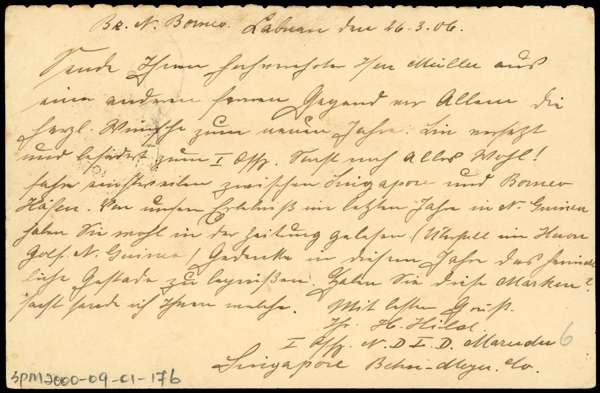 Br. N. Borneo. Labuan den 26.3.06.
Sende Ihnen hochverehrter Herr Müller aus
einer anderen fernen Gegend vor Allem die
herzl. Wünsche zum neuen Jahre. Bin versetzt
und befördert zum I Offz. Sonst noch Alles Wohl!
fahre einstweilen zwischen Singapore und Borneo
Häfen. Von unsern Erlebniß im letzten Jahre in N. Guinea
haben Sie wohl in der Zeitung gelesen (Überfall im Huon
Golf. N. Guinea) Gedenke in diesem Jahre das heimat
liche Gestade zu begrüßen. Haben Sie diese Marken?
sonst sende ich Ihnen welche. Mit besten Gruß.
Ihr H. Hild
I Offz. N. D. L. D. Marudu 6
Singapore Behn-Meyer. Co.
SPM2000-09-01-176